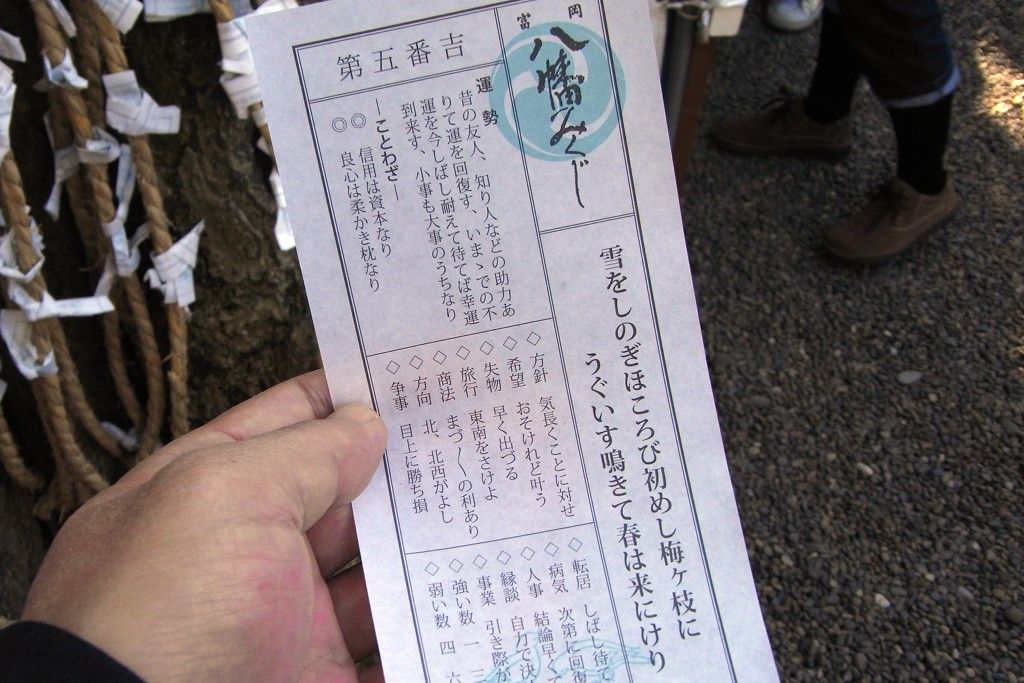 富岡
八幡みくじ
第五番吉
雪をしのぎほころび初めし梅ヶ枝に
うぐいす鳴きて春は来にけり
運勢
昔の友人、知り人などの助力あ
りて運を回復す、いまゝでの不
運を今しばし耐えて待てば幸運
到来す、小事も大事のうちなり
―ことわざ―
◎信用は資本なり
◎良心は柔かき枕なり
◇方針 気長くことに対せ
◇希望 おそけれど叶う
◇失物 早く出づる
◇旅行 東南をさけよ
◇商法 まづ〳〵の利あり
◇方向 北、北西がよし
◇争事 目上に勝ち損
◇転居 しばし待て
◇病気 次第に回復
◇人事 結論早くて
◇縁談 自力で決
◇事業 引き際が
◇強い数 一 三
◇弱い数 四 六